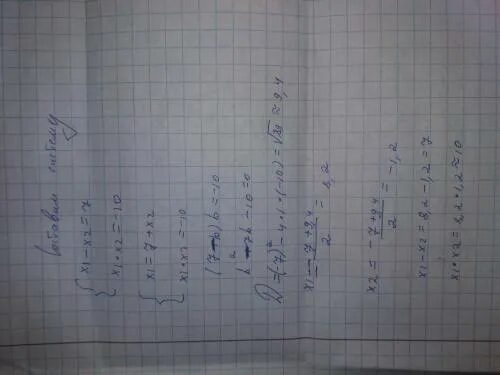 Составим систему
{ x1-x2=7
{ x1·x2=-10
{ x1=7+x2
{ x1·x2=-10
(7-b)b=-10
b²-7b-10=0
D=(-7)²-4·1·(-10)=√89≈9,4
x1=7+9,4/2=8,2
x2=-7+9,4/2=-1,2
x1-x2=8,2-1,2=7
x1·x2=8,2·1,2≈10